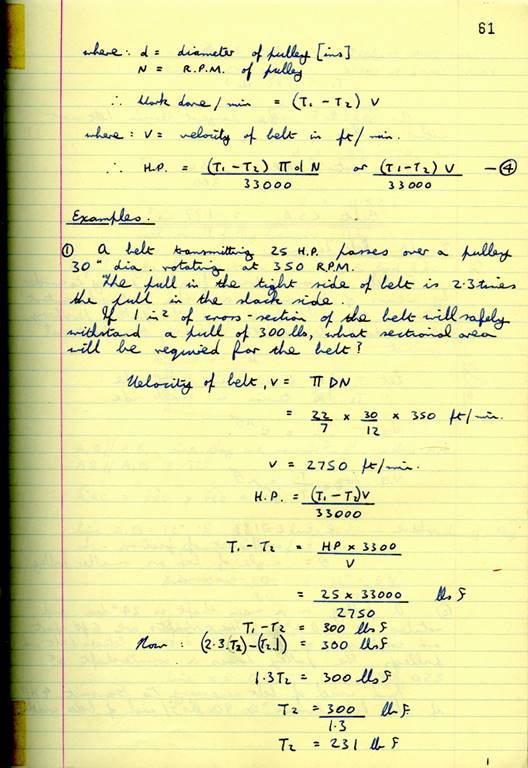 61
where: d = diameter of pulley [ins]
N = R.P.M. of pulley
∴ Work done/min = (T₁ - T₂) V
where: V = velocity of belt in ft/min.
∴ H.P. = (T₁ - T₂) π d N / 33000 or (T₁ - T₂) V / 33000 — ④
Examples.
① A belt transmitting 25 H.P. passes over a pulley
30" dia. rotating at 350 R.P.M.
The pull in the tight side of belt is 2.3 times
the pull in the slack side.
If 1 in² of cross-section of the belt will safely
withstand a pull of 300 lbs, what sectional area
will be required for the belt?
Velocity of belt, v = π DN
= 22/7 x 30/12 x 350 ft/min.
v = 2750 ft/min.
H.P. = (T₁ - T₂)V / 33000
T₁ - T₂ = HP x 3300 / V
= 25 x 33000 / 2750 lbs f
T₁ - T₂ = 300 lbs f
Now: (2.3.T₂) - (T₂.1) = 300 lbs f
1.3T₂ = 300 lbs f
T₂ = 300 / 1.3 lb f.
T₂ = 231 lb f